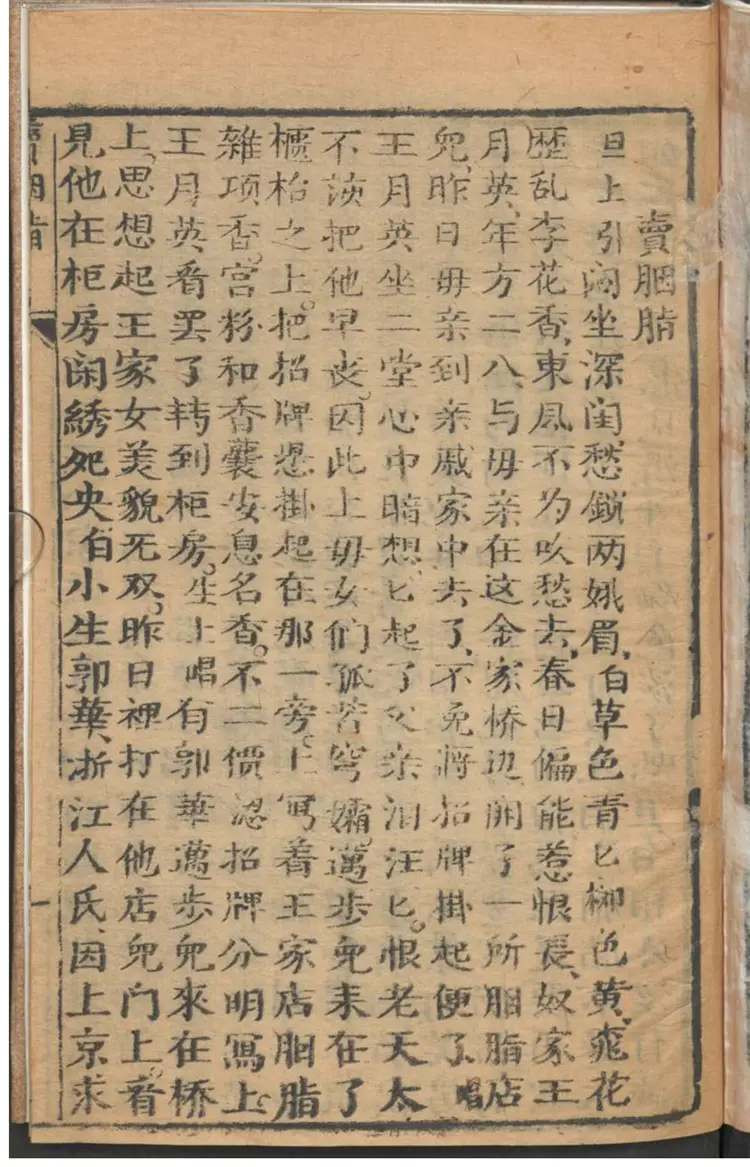 賣胭脂
旦上引闷坐深闺愁鎖两娥眉白草色青匕柳色黄桃花
歷乱李花香東風不为吹愁去春日偏能惹恨長奴家王
月英年方二八与毋亲在这金家桥边開了一所胭脂店
兒昨日毋亲到亲戚家中去了不免將招牌掛起便了唱
王月英坐二堂心中暗想匕起了父亲泪汪匕恨老天太
不該把他早丧因此上毋女们孤苦穹孀邁步兒来在了
櫃枱之上把招牌懸掛起在那一旁上写着王家店胭脂
雜項香宫粉和香囊安息名香不二價認招牌分明寫上
王月英看罢了转到柜房生上唱有郭華邁步兒來在桥
上思想起王家女美貌无双昨日裡打在他店兒门上看
見他在柜房闲綉死央白小生郭華浙江人氏因上京求
賣胭脂
一